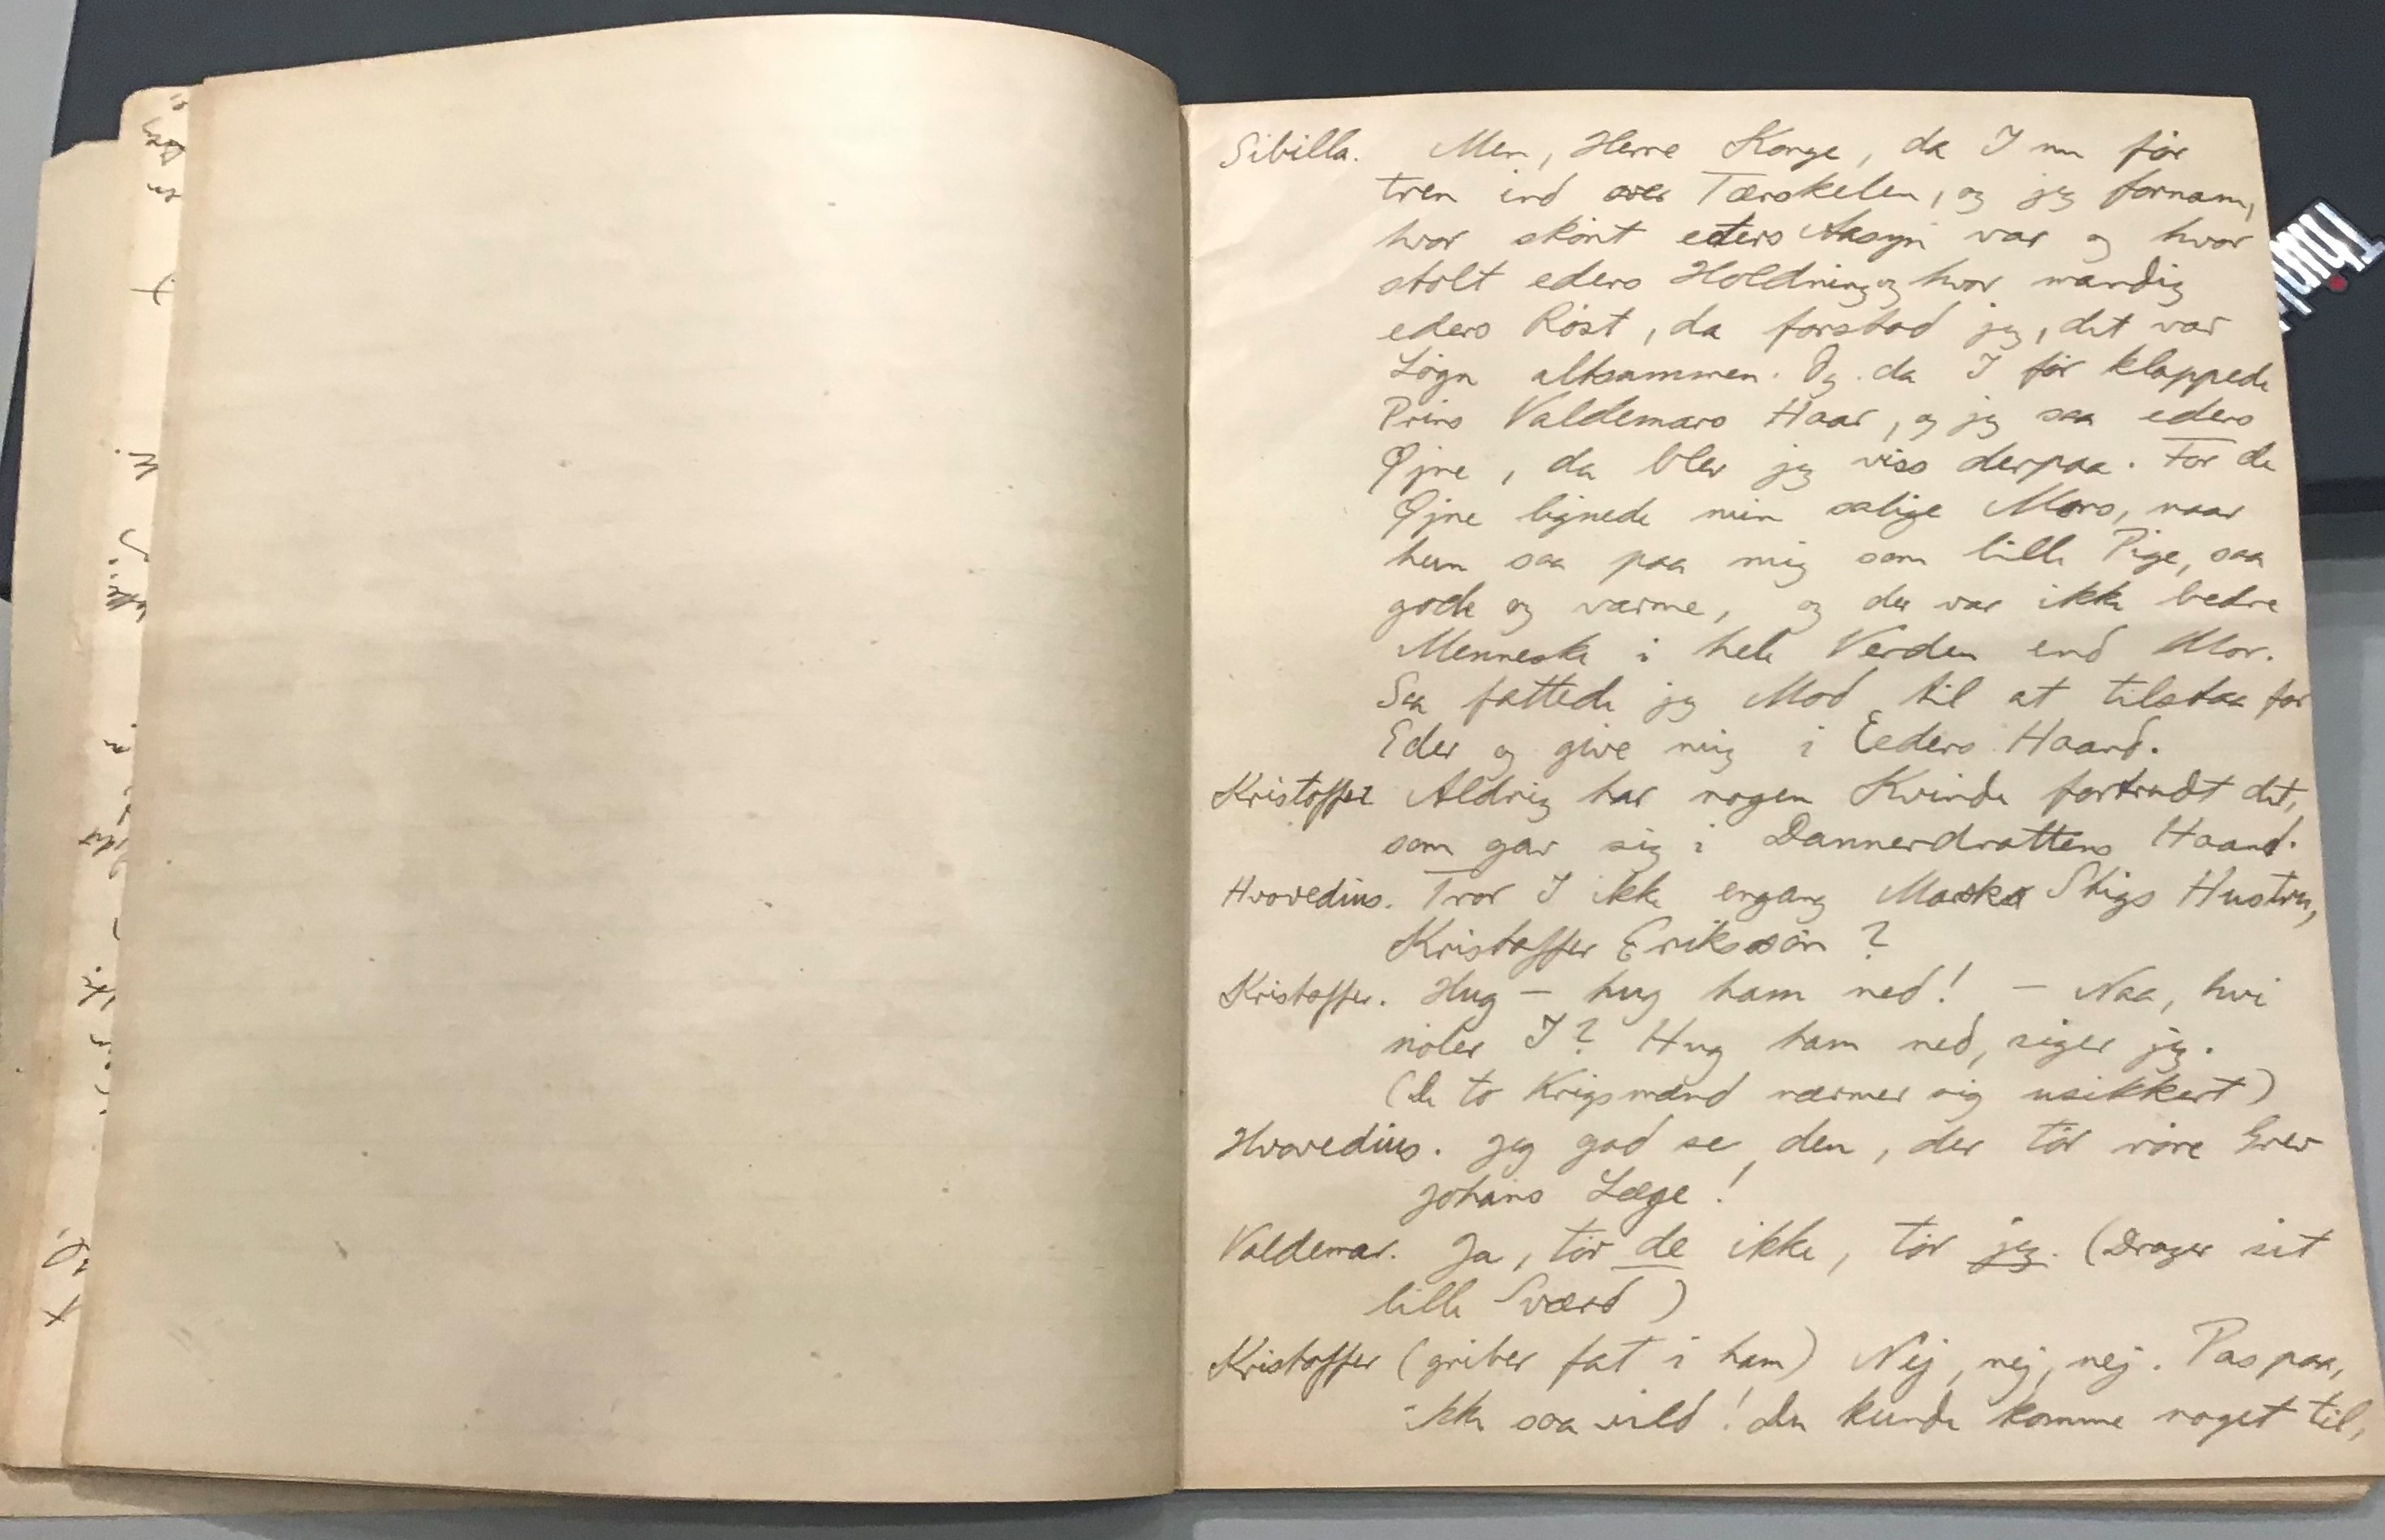 Sibilla. Men, Herre Konge, da I nu før
tren ind over Tærskelen, og jeg fornam,
hvor skønt eders Aasyn var og hvor
stolt eders Holdning og hvor mandig
eders Røst, da forstod jeg, det var
Løgn altsammen. Og da I før klappede
Prins Valdemars Haar, og jeg saa eders
Øjne, da blev jeg viss derpaa. For de
Øjne lignede min salige Mors, naar
hun saa paa mig som lille Pige, saa
gode og varme, og der var ikke bedre
Menneske i hele Verden end Mor.
Saa fattede jeg Mod til at tilstaa for
Eder og give mig i Eders Haand.
Kristoffer Aldrig har nogen Kvinde fortrudt det,
som gav sig i Dannerdrottens Haand.
Hvorvedius. Tror I ikke engang Marsk Stigs Hustru,
Kristoffer Erikssøn?
Kristoffer. Hug – hug ham ned! – Naa, hvi
nøler I? Hug ham ned, siger jeg.
(De to Krigsmænd nærmer sig usikkert)
Hvorvedius. Jeg gad se den, der tør røre Grev
Johans Læge!
Valdemar. Ja, tør de ikke, tør jeg. (Drager sit
lille Sværd)
Kristoffer (griber fat i ham) Nej, nej, nej. Pas paa,
ikke saa vild! Du kunde komme noget til,